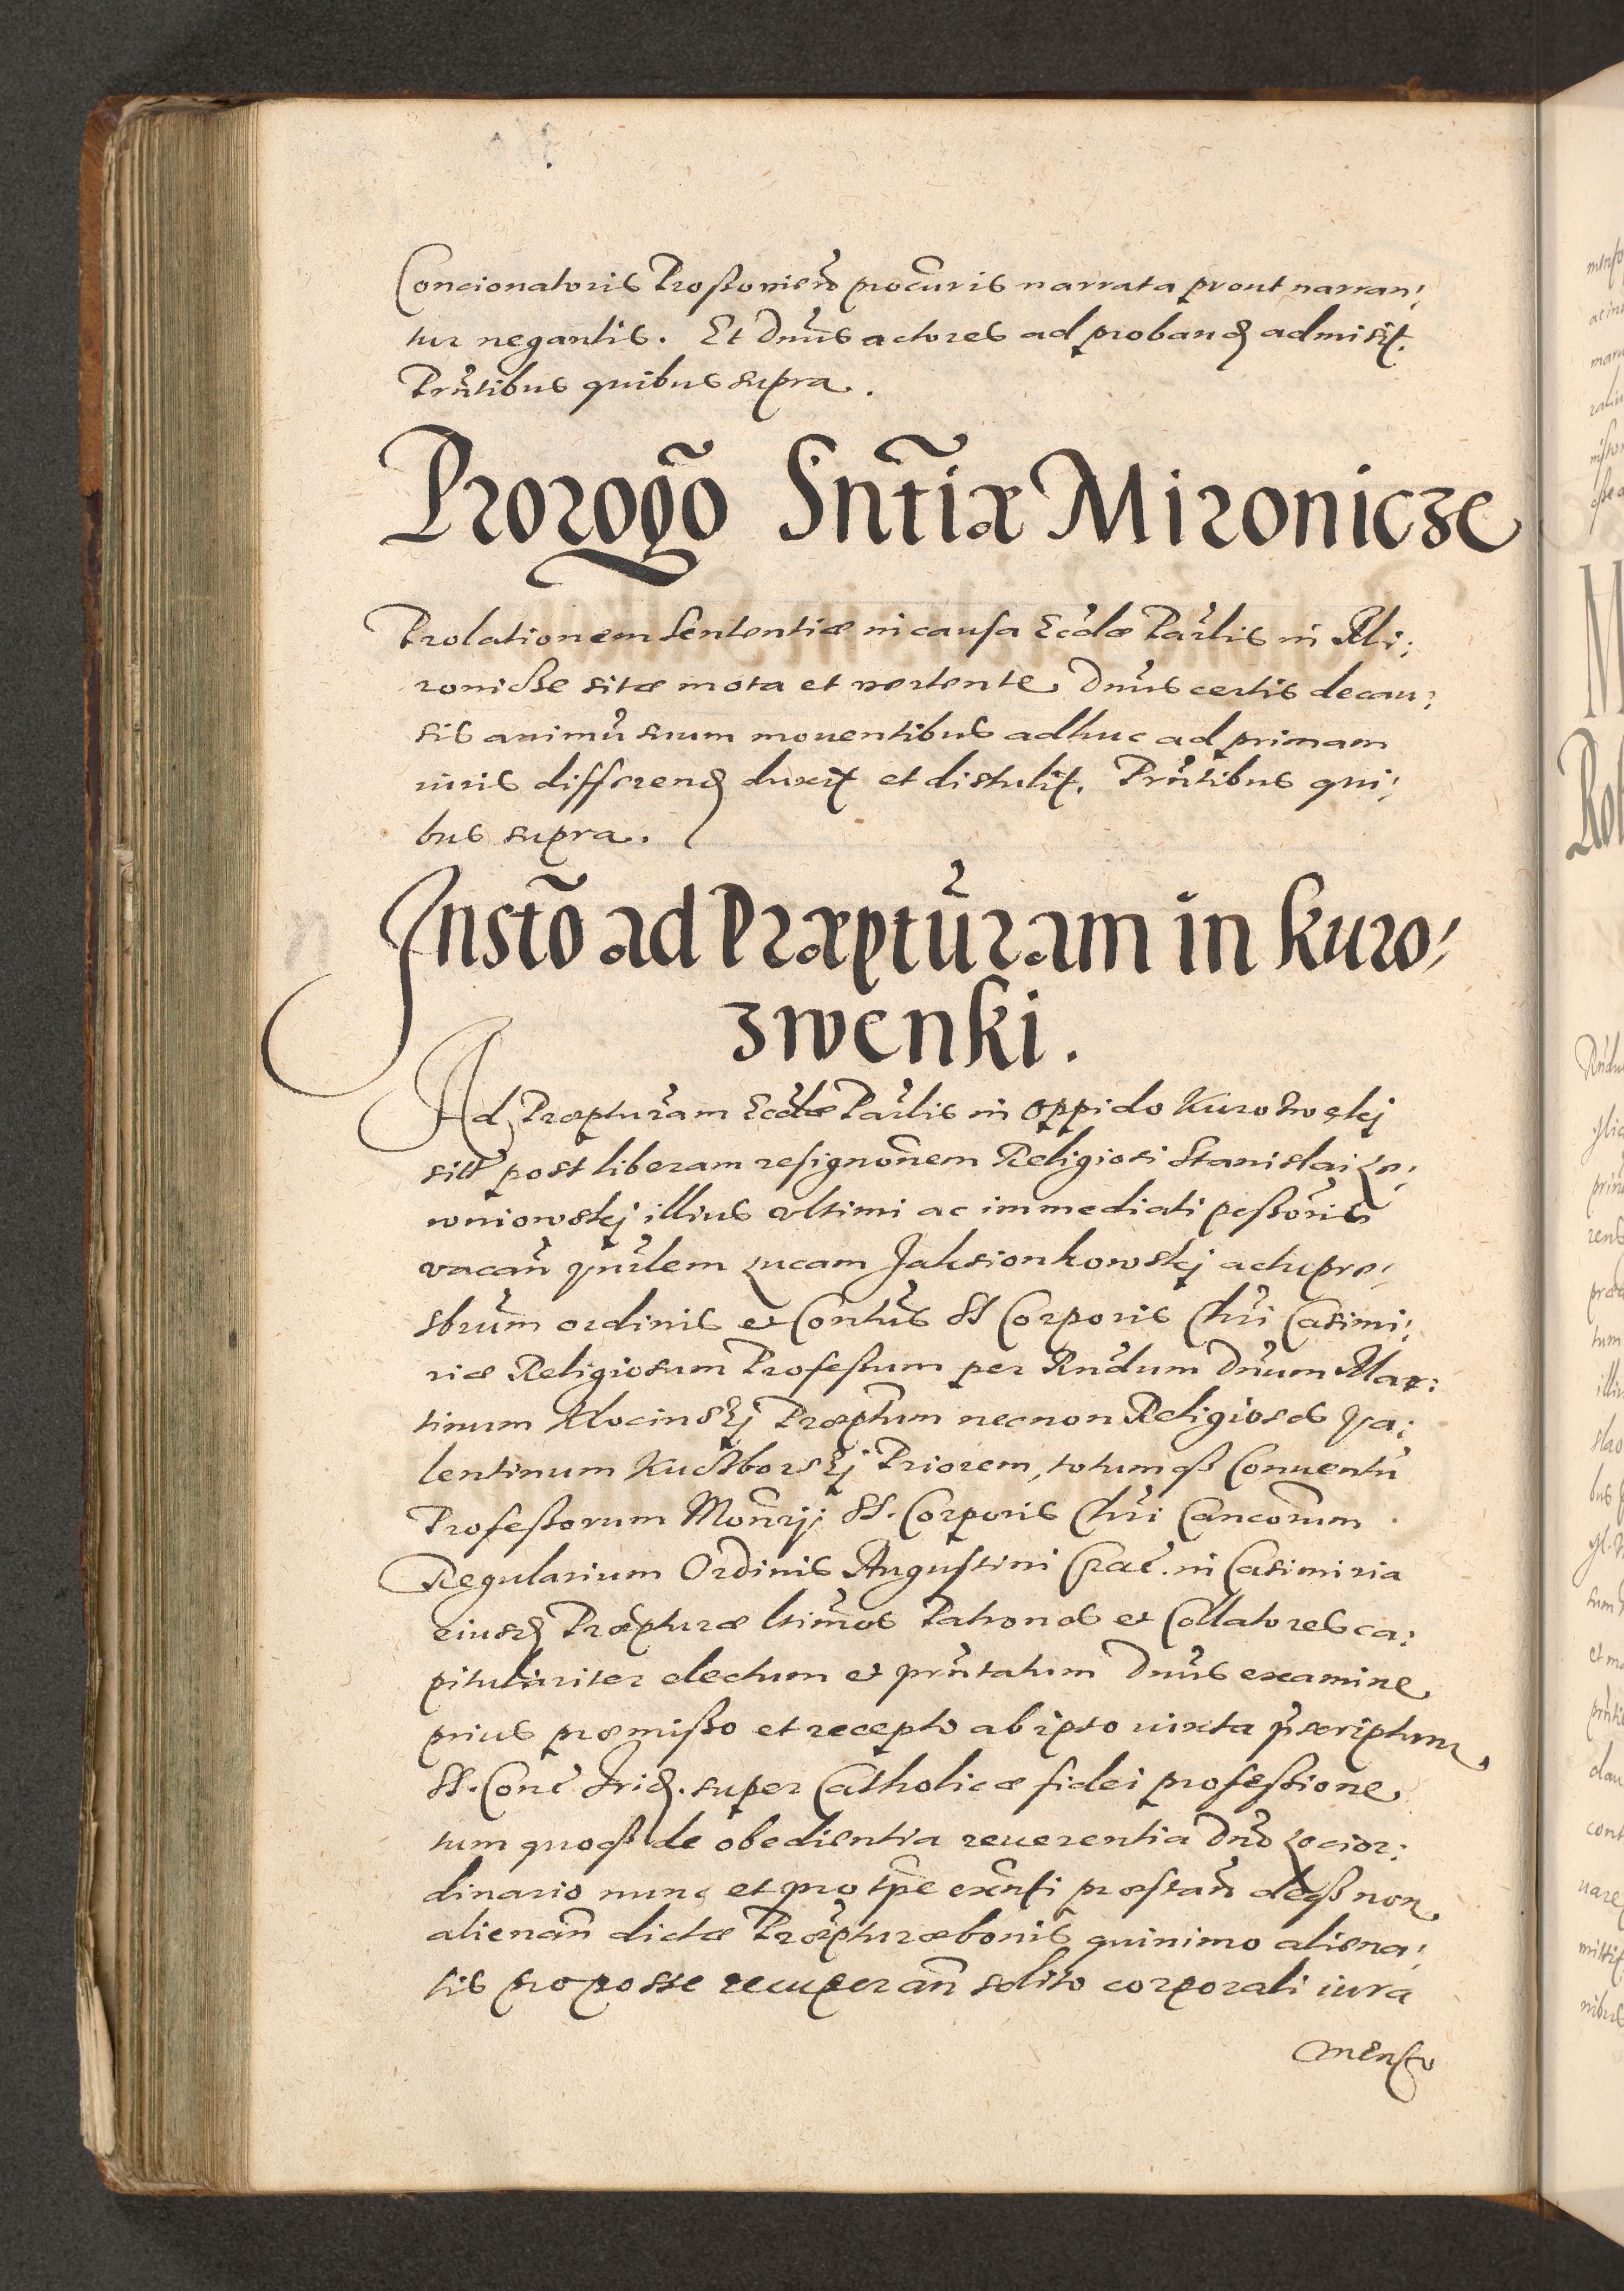 Concionatoris Proßovien procuris narrata prout narran:
tur negantis. Et Dnus actores ad proband admisit.
Prntibus quibus supra.
Prorogo Sntiæ Mironicze
Prolationem Sententiæ in causa Eccłæ Parlis in Mi:
ronicße sitæ mota et vertente Dnus certis de cau:
sis animu suum mouentibus adhuc ad primam
iuris differend duxit et distulit. Prntibus qui:
bus supra.
Insto ad Præpturam in Kuro:
zwenki.
Ad Præpturam Eccłæ Parlis in oppido
sitt post liberam resignonem Religiosi Stanislai Lo:
wniowskj illius vltimi ac immediati poßoris
vacan Lucam Jaksionkowskj
sbrum ordinis et Contus SS Corporis Chri Casimi:
riæ Religiosum Profeßum per Rndum Dnum Mar:
tinum Klocinskj Præptum necnon Religiosos Va:
lentinum Kucßborskj Priorem, totumqß Conuentu
Profeßorum Monrij SS. Corporis Chri Canconum
Regularium Ordinis Augustini Crac. in Casimiria
eiusd Præpturæ ltimos Patronos et Collatores ca:
pitulariter electum et prntatum Dnus examine
prius præmißo et recepto ab ipso iuxta pscriptum
SS. Conc Trid. super Catholicæ fidei profeßione
tum quoqß de obedientia reuerentia Dno Loci or:
dinario nunc et pro tpe exnti præstan deqß non
alienan dictæ Præpturæ bonis quinimo aliena:
tis pro posse recuperan solito corporali iura
mento